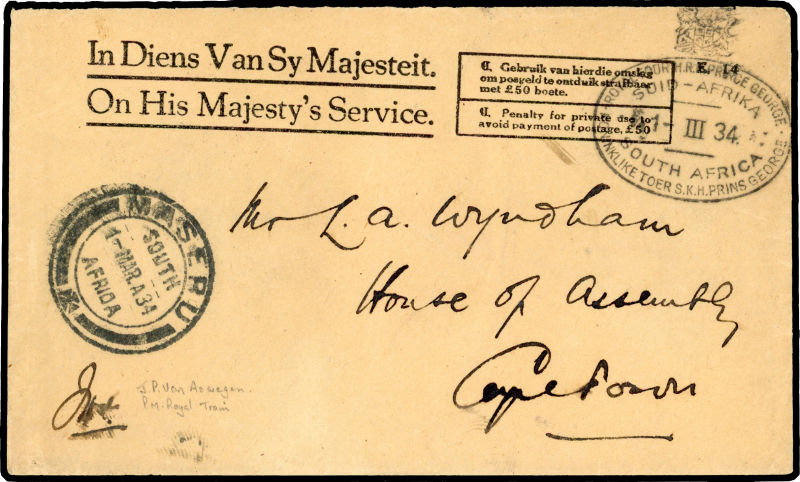 In Diens Van Sy Majesteit.
On His Majesty's Service.
₵. Gebruik van hierdie omslag
om posgeld te ontduik strafbaar
met £50 boete.
₵. Penalty for private use to
avoid payment of postage, £50
E. 14
TOUR H.R.H. PRINCE GEORGE
SUID-AFRIKA
1- III 34
SOUTH AFRICA
KONINKLIKE TOER S.K.H. PRINS GEORGE
MASERU
SOUTH
1-MAR.A34
AFRICA
Mr L.A. Wyndham
House of Assembly
Cape Town
J.P. Van Aswegen.
P.M. Royal Train